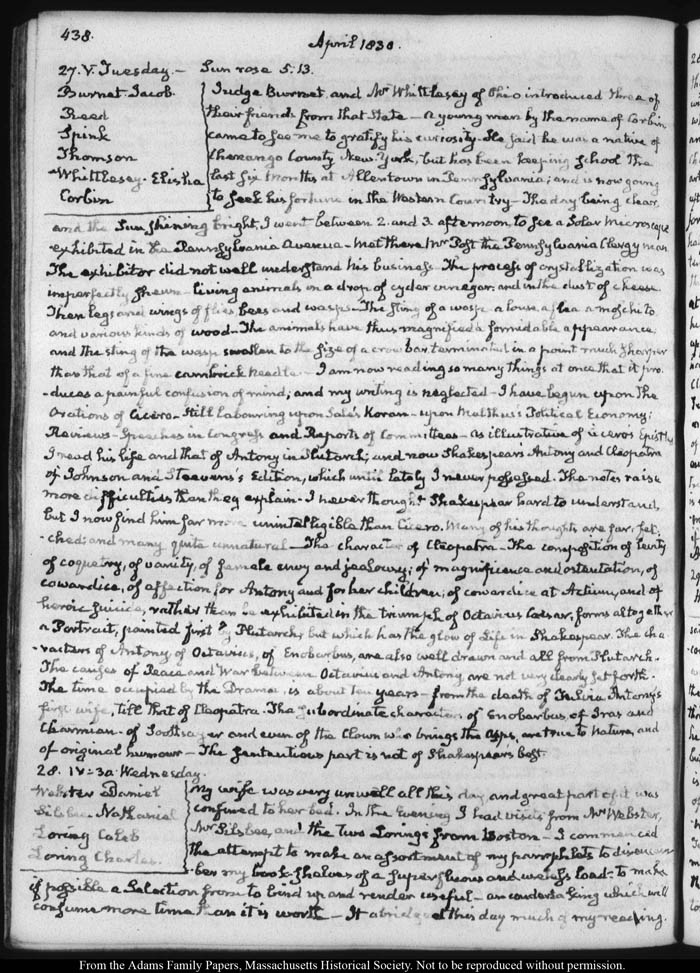 438.
April 1830.
27. V. Tuesday. — Sun rose 5.13.
Burnet Jacob.
Reed
Spink
Thomson
Whittlesey. Elisha
Corbin
Judge Burnet, and Mr Whittlesey of Ohio introduced three of
their friends from that State — A young man by the name of Corbin
came to see me to gratify his curiosity. He said he was a native of
Chenango County New-York, but has been keeping school the
last six months at Allentown in Pennsylvania; and is now going
to seek his fortune in the Western Country — The day being clear,
and the Sun shining bright, I went between 2. and 3. afternoon to see a Solar Microscope
exhibited in the Pennsylvania Avenue — Met there Mr Post the Pennsylvania Clergyman.
The exhibitor did not well understand his business — The process of crystallization was
imperfectly shewn — living animals in a drop of cyder vinegar; and in the dust of cheese.
Then legs and wings of flies bees and wasps — The sting of a wasp a louse, a flea a moscheto
and various kinds of wood — The animals have thus magnified a formidable appearance,
and the sting of the wasp swollen to the size of a crow bar terminated in a point much sharper
than that of a fine cambrick needle — I am now reading so many things at once that it pro-
-duces a painful confusion of mind; and my writing is neglected — I have begun upon the
Orations of Cicero — Still labouring upon Sale's Koran — upon Malthus's Political Economy;
Reviews — Speeches in Congress and Reports of Committees — As illustrative of Cicero's Epistles
I read his life and that of Antony in Plutarch; and now Shakespears Antony and Cleopatra
of Johnson and Steevens's Edition, which until lately I never possessed. The notes raise
more difficulties than they explain. I never thought Shakespear hard to understand,
but I now find him far more unintelligible than Cicero. Many of his thoughts are far-fet-
-ched; and many quite unnatural — The character of Cleopatra — The composition of levity
of coquetry, of vanity, of female envy and jealousy; of magnificence and ostentation, of
cowardice, of affection for Antony and for her children; of cowardice at Actium, and of
heroic suicide, rather than be exhibited in the triumph of Octavius Caesar, forms altogether
a Portrait, painted first by Plutarch; but which has the glow of Life in Shakespear. The cha-
-racters of Antony, of Octavius, of Enobarbus, are also well drawn and all from Plutarch.
The causes of Peace and War between Octavius and Antony are not very clearly set forth.
The time occupied by the Drama, is about ten years — from the death of Fulvia Antony's
first wife, till that of Cleopatra. The subordinate characters of Enobarbus of Iras and
Charmian. of Soothsayer and even of the Clown who brings the Asps, are true to Nature, and
of original humour — The sententious part is not of Shakespears best.
28. IV: 30. Wednesday.
Webster Daniel
Silsbee. Nathaniel
Loring Caleb
Loring Charles.
My wife was very unwell all this day and great part of it was
confined to her bed. In the Evening I had visits from Mr Webster,
Mr Silsbee, and the two Lorings from Boston — I commenced
the attempt to make an assortment of my pamphlets to disencum-
-ber my book-shelves of a superfluous and useless load: to make
if possible a Selection from to bind up and render useful — an undertaking which will
consume more time than it is worth — It abridged this day much of my reading.
From the Adams Family Papers, Massachusetts Historical Society. Not to be reproduced without permission.